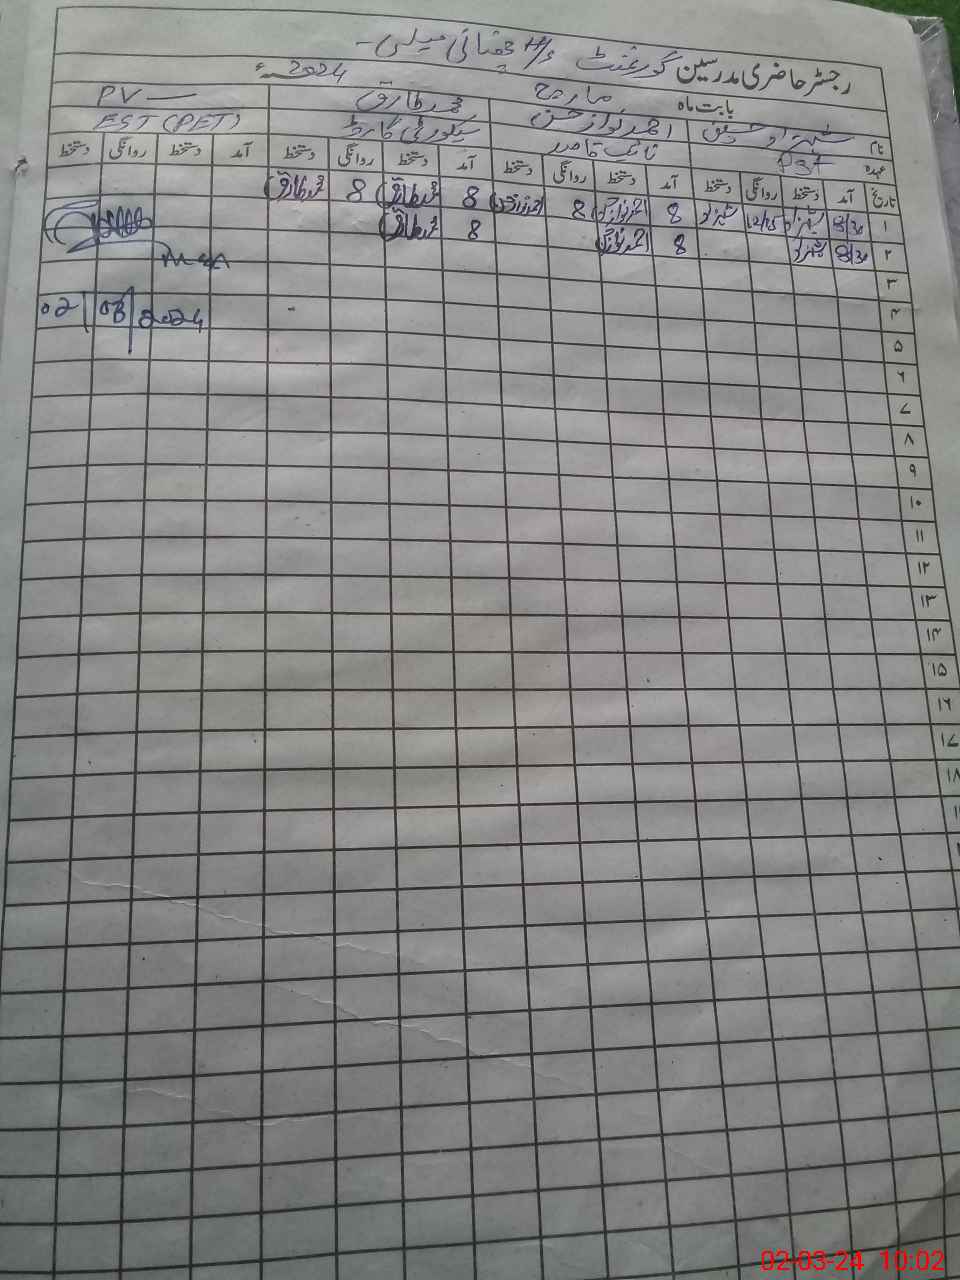 رجسٹر حاضری مدرسین گورنمنٹ H/S چغتائی میلسی -
بابت ماہ مارچ 2024ء
نام احمد نواز حسن محمد طارق PV —
عہدہ PST نائب قاصد سیکورٹی گارڈ EST (PET)
تاریخ آمد دستخط روانگی دستخط آمد دستخط روانگی دستخط آمد دستخط روانگی دستخط آمد دستخط روانگی دستخط
۱ 8/30 12/15 8 احمد نواز 8 احمد نواز 8 محمد طارق 8 محمد طارق
۲ 8/30 8 احمد نواز 8 محمد طارق
MEA
۳
۴ 02 03 2024
۵
۶
۷
۸
۹
۱۰
۱۱
۱۲
۱۳
۱۴
۱۵
۱۶
۱۷
۱۸
02-03-24 10:02